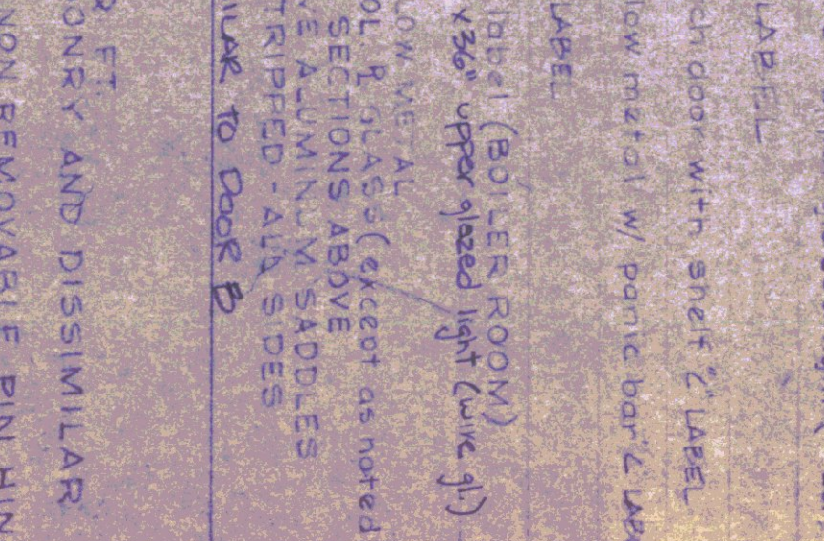 LABEL
ch door with shelf "C" LABEL
low metal w/ panic bar "C LAB
LABEL
label (BOILER ROOM)
x 36" upper glazed light (wire gl.)
LOW METAL
OL. P GLASS (except as noted
SECTIONS ABOVE
VE ALUMINUM SADDLES
TRIPPED - ALL SIDES
ILAR TO DOOR B
FT.
ONRY AND DISSIMILAR
NON REMOVABLE PIN HIN